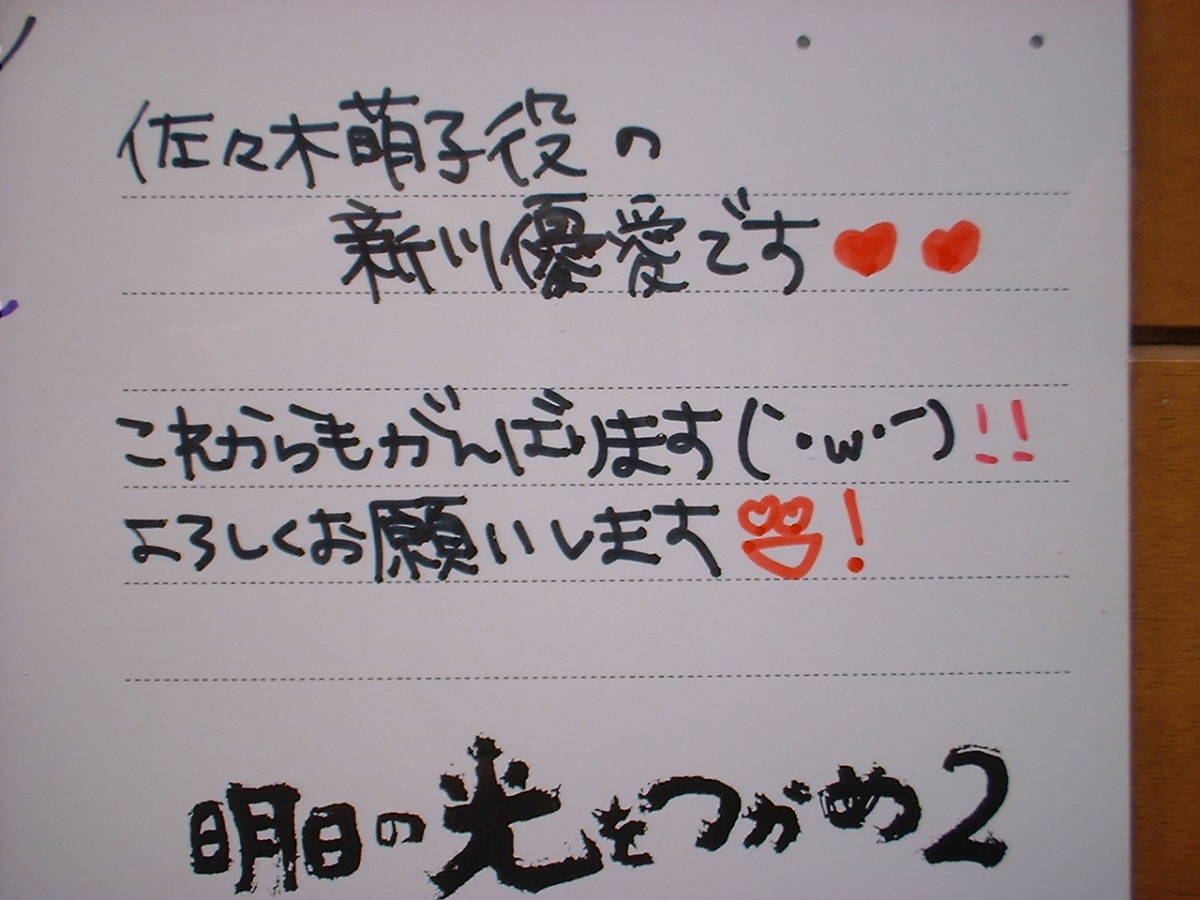 佐々木萌子役の
新川優愛です♥♥
これからもがんばります(｀・ω・´)!!
よろしくお願いします!
明日の光をつかめ2